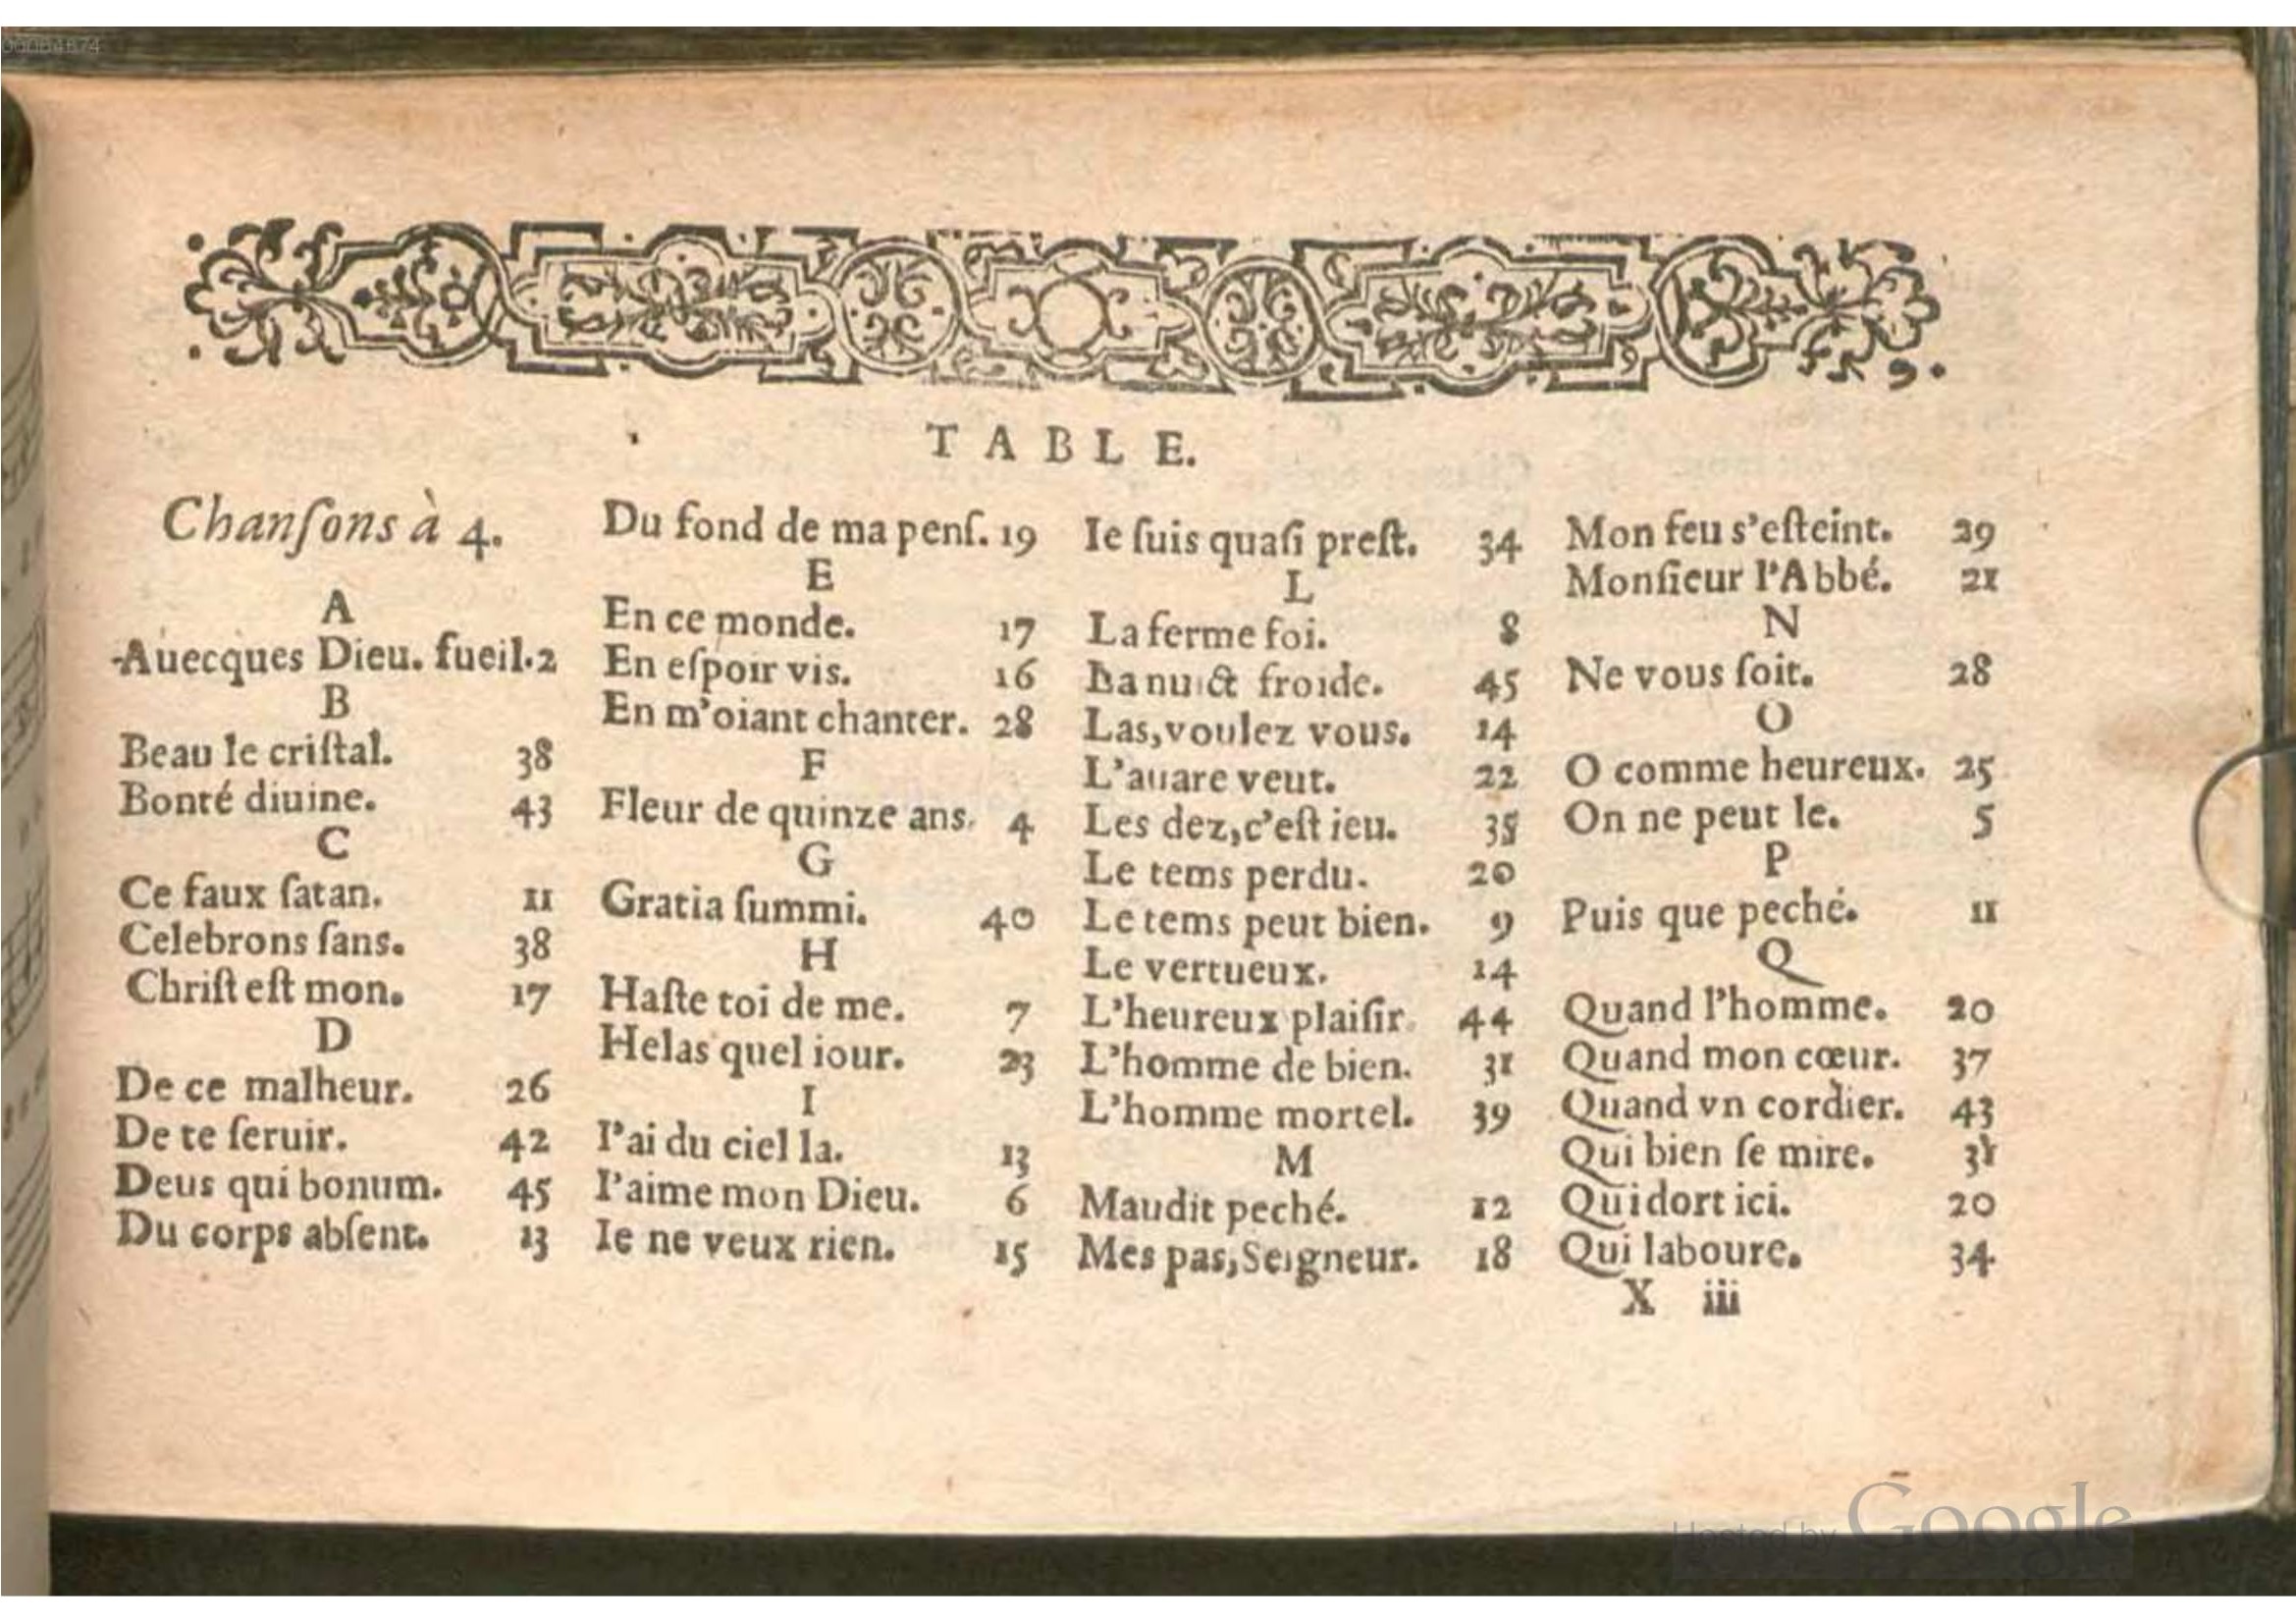 TABLE.
Chanſons à 4.
A
Auecques Dieu. fueil.2
B
Beau le criſtal. 38
Bonté diuine. 43
C
Ce faux ſatan. 11
Celebrons ſans. 38
Chriſt eſt mon. 17
D
De ce malheur. 26
De te ſeruir. 42
Deus qui bonum. 45
Du corps abſent. 13
Du fond de ma penſ. 19
E
En ce monde. 17
En eſpoir vis. 16
En m'oiant chanter. 28
F
Fleur de quinze ans. 4
G
Gratia ſummi. 40
H
Haſte toi de me. 7
Helas quel iour. 23
I
I'ai du ciel la. 13
I'aime mon Dieu. 6
Ie ne veux rien. 15
Ie ſuis quaſi preſt. 34
L
La ferme foi. 8
La nuict froide. 45
Las, voulez vous. 14
L'auare veut. 22
Les dez, c'eſt ieu. 35
Le tems perdu. 20
Le tems peut bien. 9
Le vertueux. 14
L'heureux plaiſir. 44
L'homme de bien. 31
L'homme mortel. 39
M
Maudit peché. 12
Mes pas, Seigneur. 18
Mon feu s'eſteint. 29
Monſieur l'Abbé. 21
N
Ne vous ſoit. 28
O
O comme heureux. 25
On ne peut le. 5
P
Puis que peché. 11
Q
Quand l'homme. 20
Quand mon cœur. 37
Quand vn cordier. 43
Qui bien ſe mire. 31
Qui dort ici. 20
Qui laboure. 34
X iii
Hosted by Google